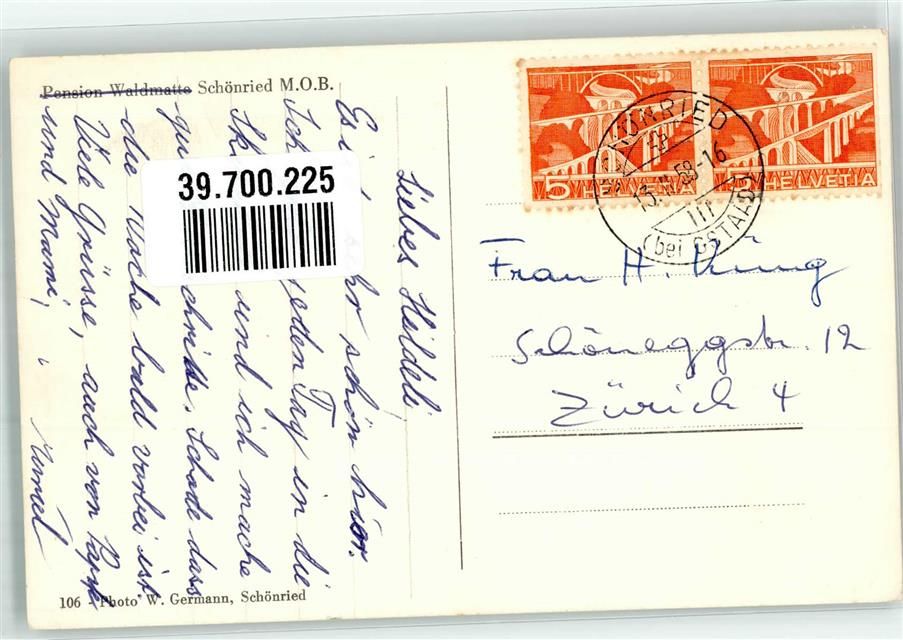 Pension Waldmatte Schönried M.O.B.
Liebes Heideli,
Es ist sehr schön hier.
Ich jeden Tag in die
und ich mache
gu chritte. Schade dass
die Woche bald vorbei ist.
Viele Grüsse, auch von Papi
und Mami,
39.700.225
5 HELVETIA
5 HELVETIA
SCHÖNRIED
58-16
(bei GSTAAD)
Frau H. Küng
Schöneggstr. 12
Zürich 4
106 - Photo W. Germann, Schönried